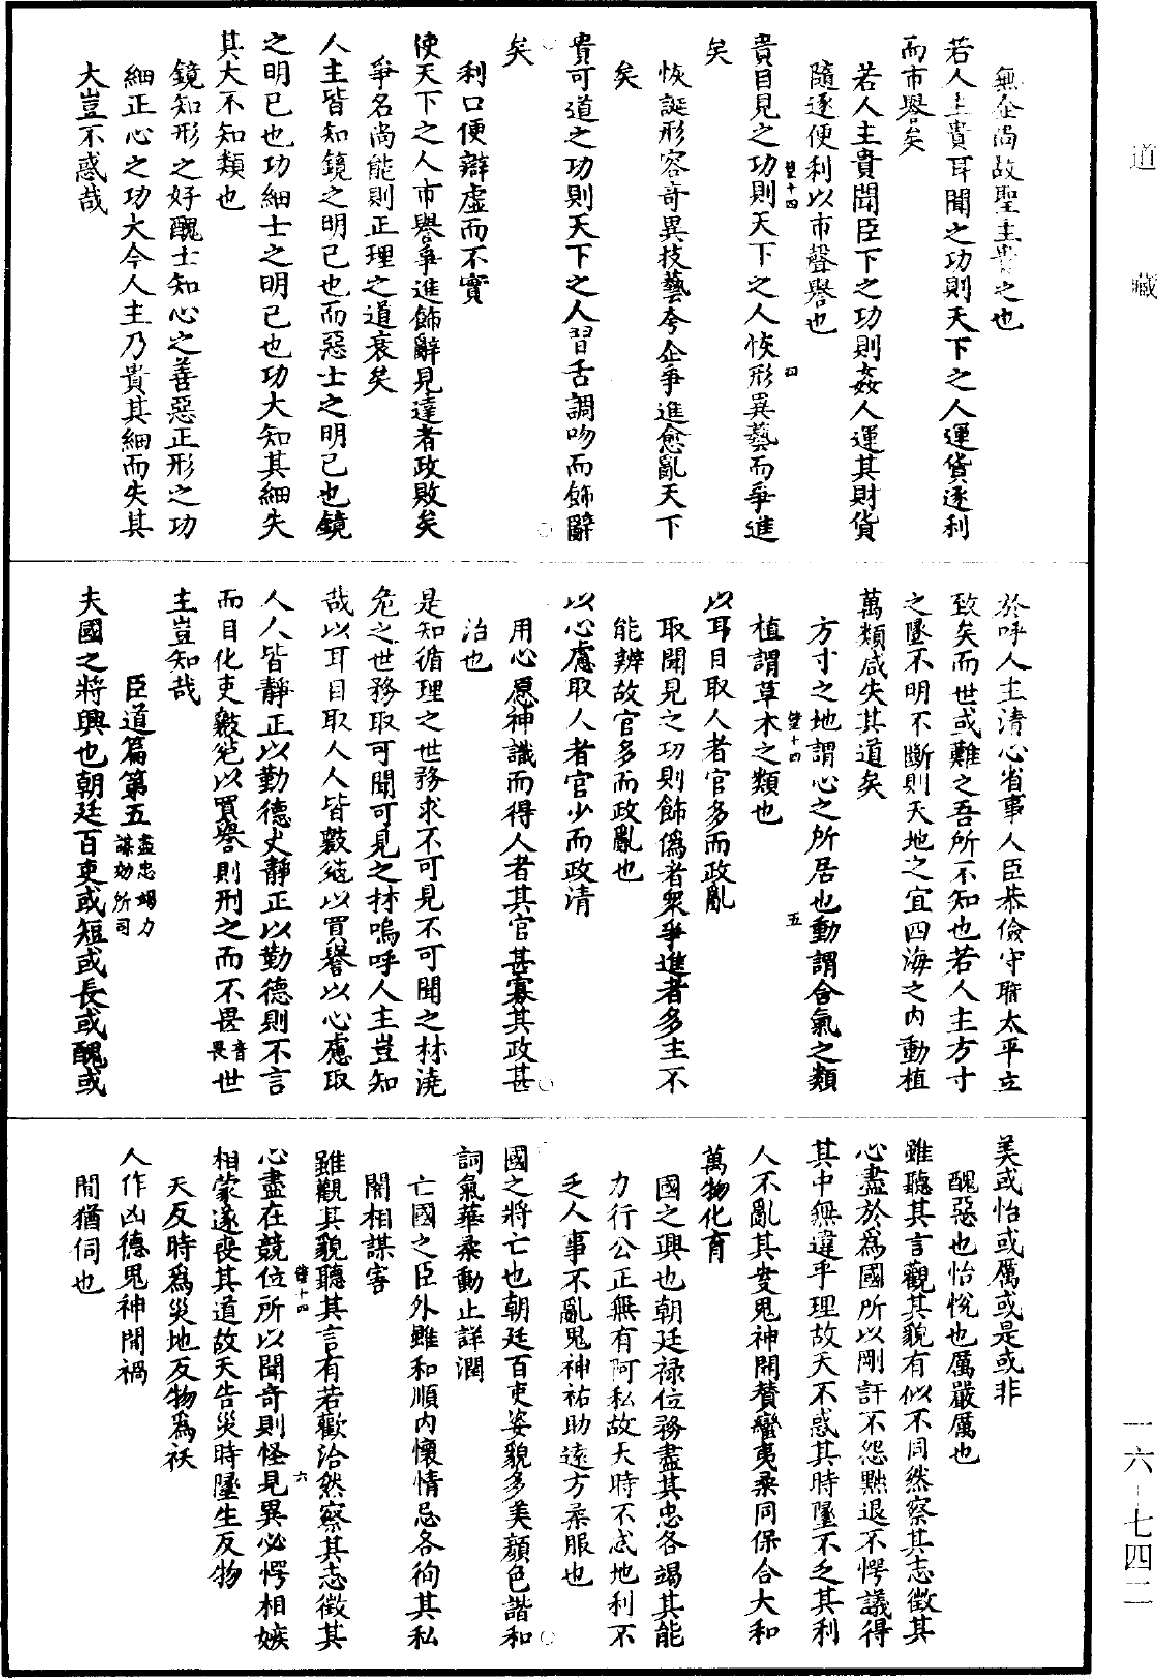 道藏
無企尚故聖主貴之也
若人主貴耳聞之功則天下之人運貨逐利
而市譽矣
若人主貴聞臣下之功則姦人運其財貨
隨逐便利以市聲譽也
貴目見之功則天下之人恢形異藝而爭進
矣
恢誕形容奇異技藝夸企爭進愈亂天下
矣
貴可道之功則天下之人習舌調吻而飾辭
矣
利口便辯虛而不實
使天下之人市譽爭進飾辭見達者政敗矣
爭名尚能則正理之道衰矣
人主皆知鏡之明已也而惡士之明已也鏡
之明已也功細士之明已也功大知其細失
其大不知類也
鏡知形之好醜士知心之善惡正形之功
細正心之功大今人主乃貴其細而失其
大豈不惑哉
於呼人主清心省事人臣恭儉守職太平立
致矣而世或難之吾所不知也若人主方寸
之墬不明不斷則天地之宜四海之內動植
萬類咸失其道矣
方寸之地謂心之所居也動謂含氣之類
植謂草木之類也
以耳目取人者官多而政亂
取聞見之功則飾偽者眾爭進者多主不
能辨故官多而政亂也
以心慮取人者官少而政清
用心愿神識而得人者其官甚寡其政甚
治也
是知循理之世務求不可見不可聞之材澆
危之世務取可聞可見之材嗚呼人主豈知
哉以耳目取人人皆覈絁以買譽以心慮取
人人皆靜正以勤德吏靜正以勤德則不言
而目化吏覈絁以買譽則刑之而不畏音畏世
主豈知哉
臣道篇第五盡忠竭力謀効所司
夫國之將興也朝廷百吏或短或長或醜或
美或怡或厲或是或非
醜惡也怡悅也厲嚴厲也
雖聽其言觀其貌有似不同然察其志徵其
心盡於為國所以剛訐不怨黜退不愕議得
其中無違乎理故天不惑其時墬不乏其利
人不亂其度鬼神開贊蠻夷柔同保合大和
萬物化育
國之興也朝廷祿位務盡其忠各竭其能
力行公正無有阿私故天時不忒地利不
乏人事不亂鬼神祐助遠方柔服也
國之將亡也朝廷百吏姿貌多美顏色諧和
詞氣華柔動止詳潤
亡國之臣外雖和順內懷情忌各徇其私
闇相謀害
雖觀其貌聽其言有若歡洽然察其志徵其
心盡在競位所以聞奇則怪見異必愕相嫉
相蒙遂喪其道故天告災時墬生反物
天反時為災地反物為祅
人作凶德鬼神閒禍
閒猶伺也
一六-七四二